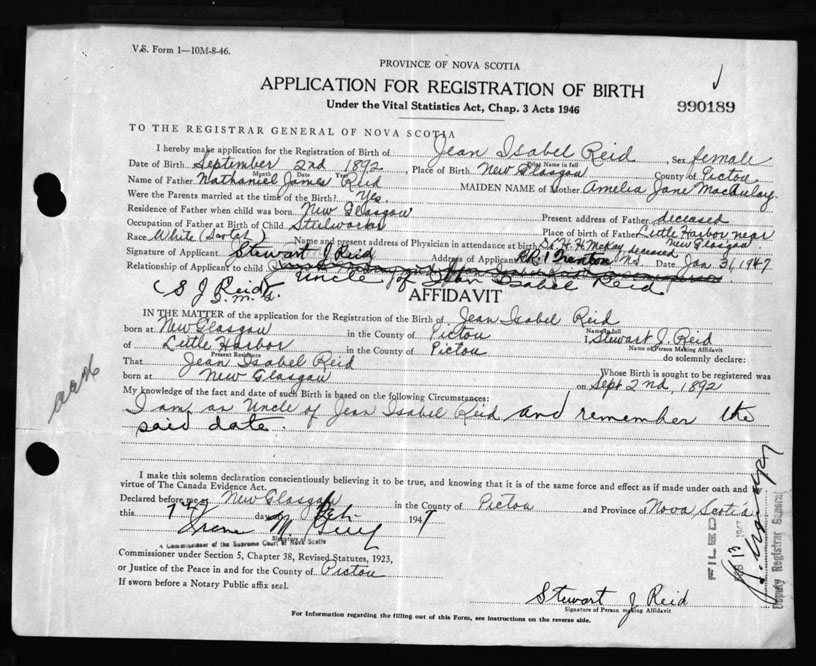 V.S. Form 1—10M-8-46.
PROVINCE OF NOVA SCOTIA
APPLICATION FOR REGISTRATION OF BIRTH
Under the Vital Statistics Act, Chap. 3 Acts 1946
990189
TO THE REGISTRAR GENERAL OF NOVA SCOTIA
I hereby make application for the Registration of Birth of Jean Isabel Reid, Sex female
Print Name in full
Date of Birth September 2nd 1892, Place of Birth New Glasgow County of Pictou
Month Date Year
Name of Father Nathaniel James Reid MAIDEN NAME of Mother Amelia Jane MacAulay
Were the Parents married at the time of the Birth? Yes
Residence of Father when child was born New Glasgow Present address of Father deceased
Occupation of Father at Birth of Child Steelworker Place of birth of Father Little Harbor near New Glasgow
Race White (Scotch) Name and present address of Physician in attendance at birth Dr. H. H. McKay, deceased
Signature of Applicant Stewart J Reid Address of Applicant R.R. 1 Trenton N.S. Date Jan 31, 1947
Relationship of Applicant to child
Uncle of Jean Isabel Reid
(S J Reid)
AFFIDAVIT
IN THE MATTER of the application for the Registration of the Birth of Jean Isabel Reid
Name in full
born at New Glasgow in the County of Pictou I, Stewart J. Reid
Name of Person Making Affidavit
of Little Harbor in the County of Pictou do solemnly declare:
Present Residence
That Jean Isabel Reid Whose Birth is sought to be registered was
born at New Glasgow on Sept 2nd, 1892
My knowledge of the fact and date of such Birth is based on the following Circumstances:
I am an Uncle of Jean Isabel Reid and remember the
said date.
I make this solemn declaration conscientiously believing it to be true, and knowing that it is of the same force and effect as if made under oath and by
virtue of The Canada Evidence Act.
Declared before me at New Glasgow in the County of Pictou and Province of Nova Scotia
this day of Feb. 1947
Signature of
A Commissioner of the Supreme Court of Nova Scotia
Commissioner under Section 5, Chapter 38, Revised Statutes, 1923,
or Justice of the Peace in and for the County of Pictou
If sworn before a Notary Public affix seal.
FILED
FEB 13 1947
Deputy Registrar General
Stewart J Reid
Signature of Person making Affidavit
For Information regarding the filling out of this Form, see instructions on the reverse side.